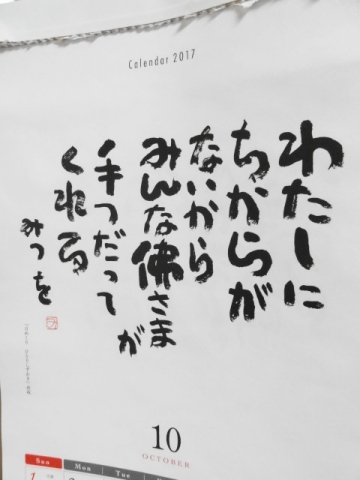 Calendar 2017
わたしに
ちからが
ないから
みんな佛さまが
手つだって
くれる
みつを
10
OCTOBER
Sun
Mon
Tue
1